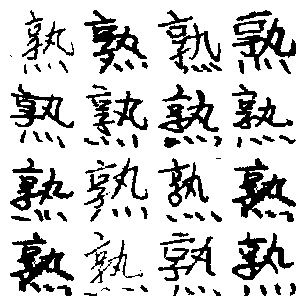 熟熟熟熟
熟熟熟熟
熟熟熟熟
熟熟熟熟